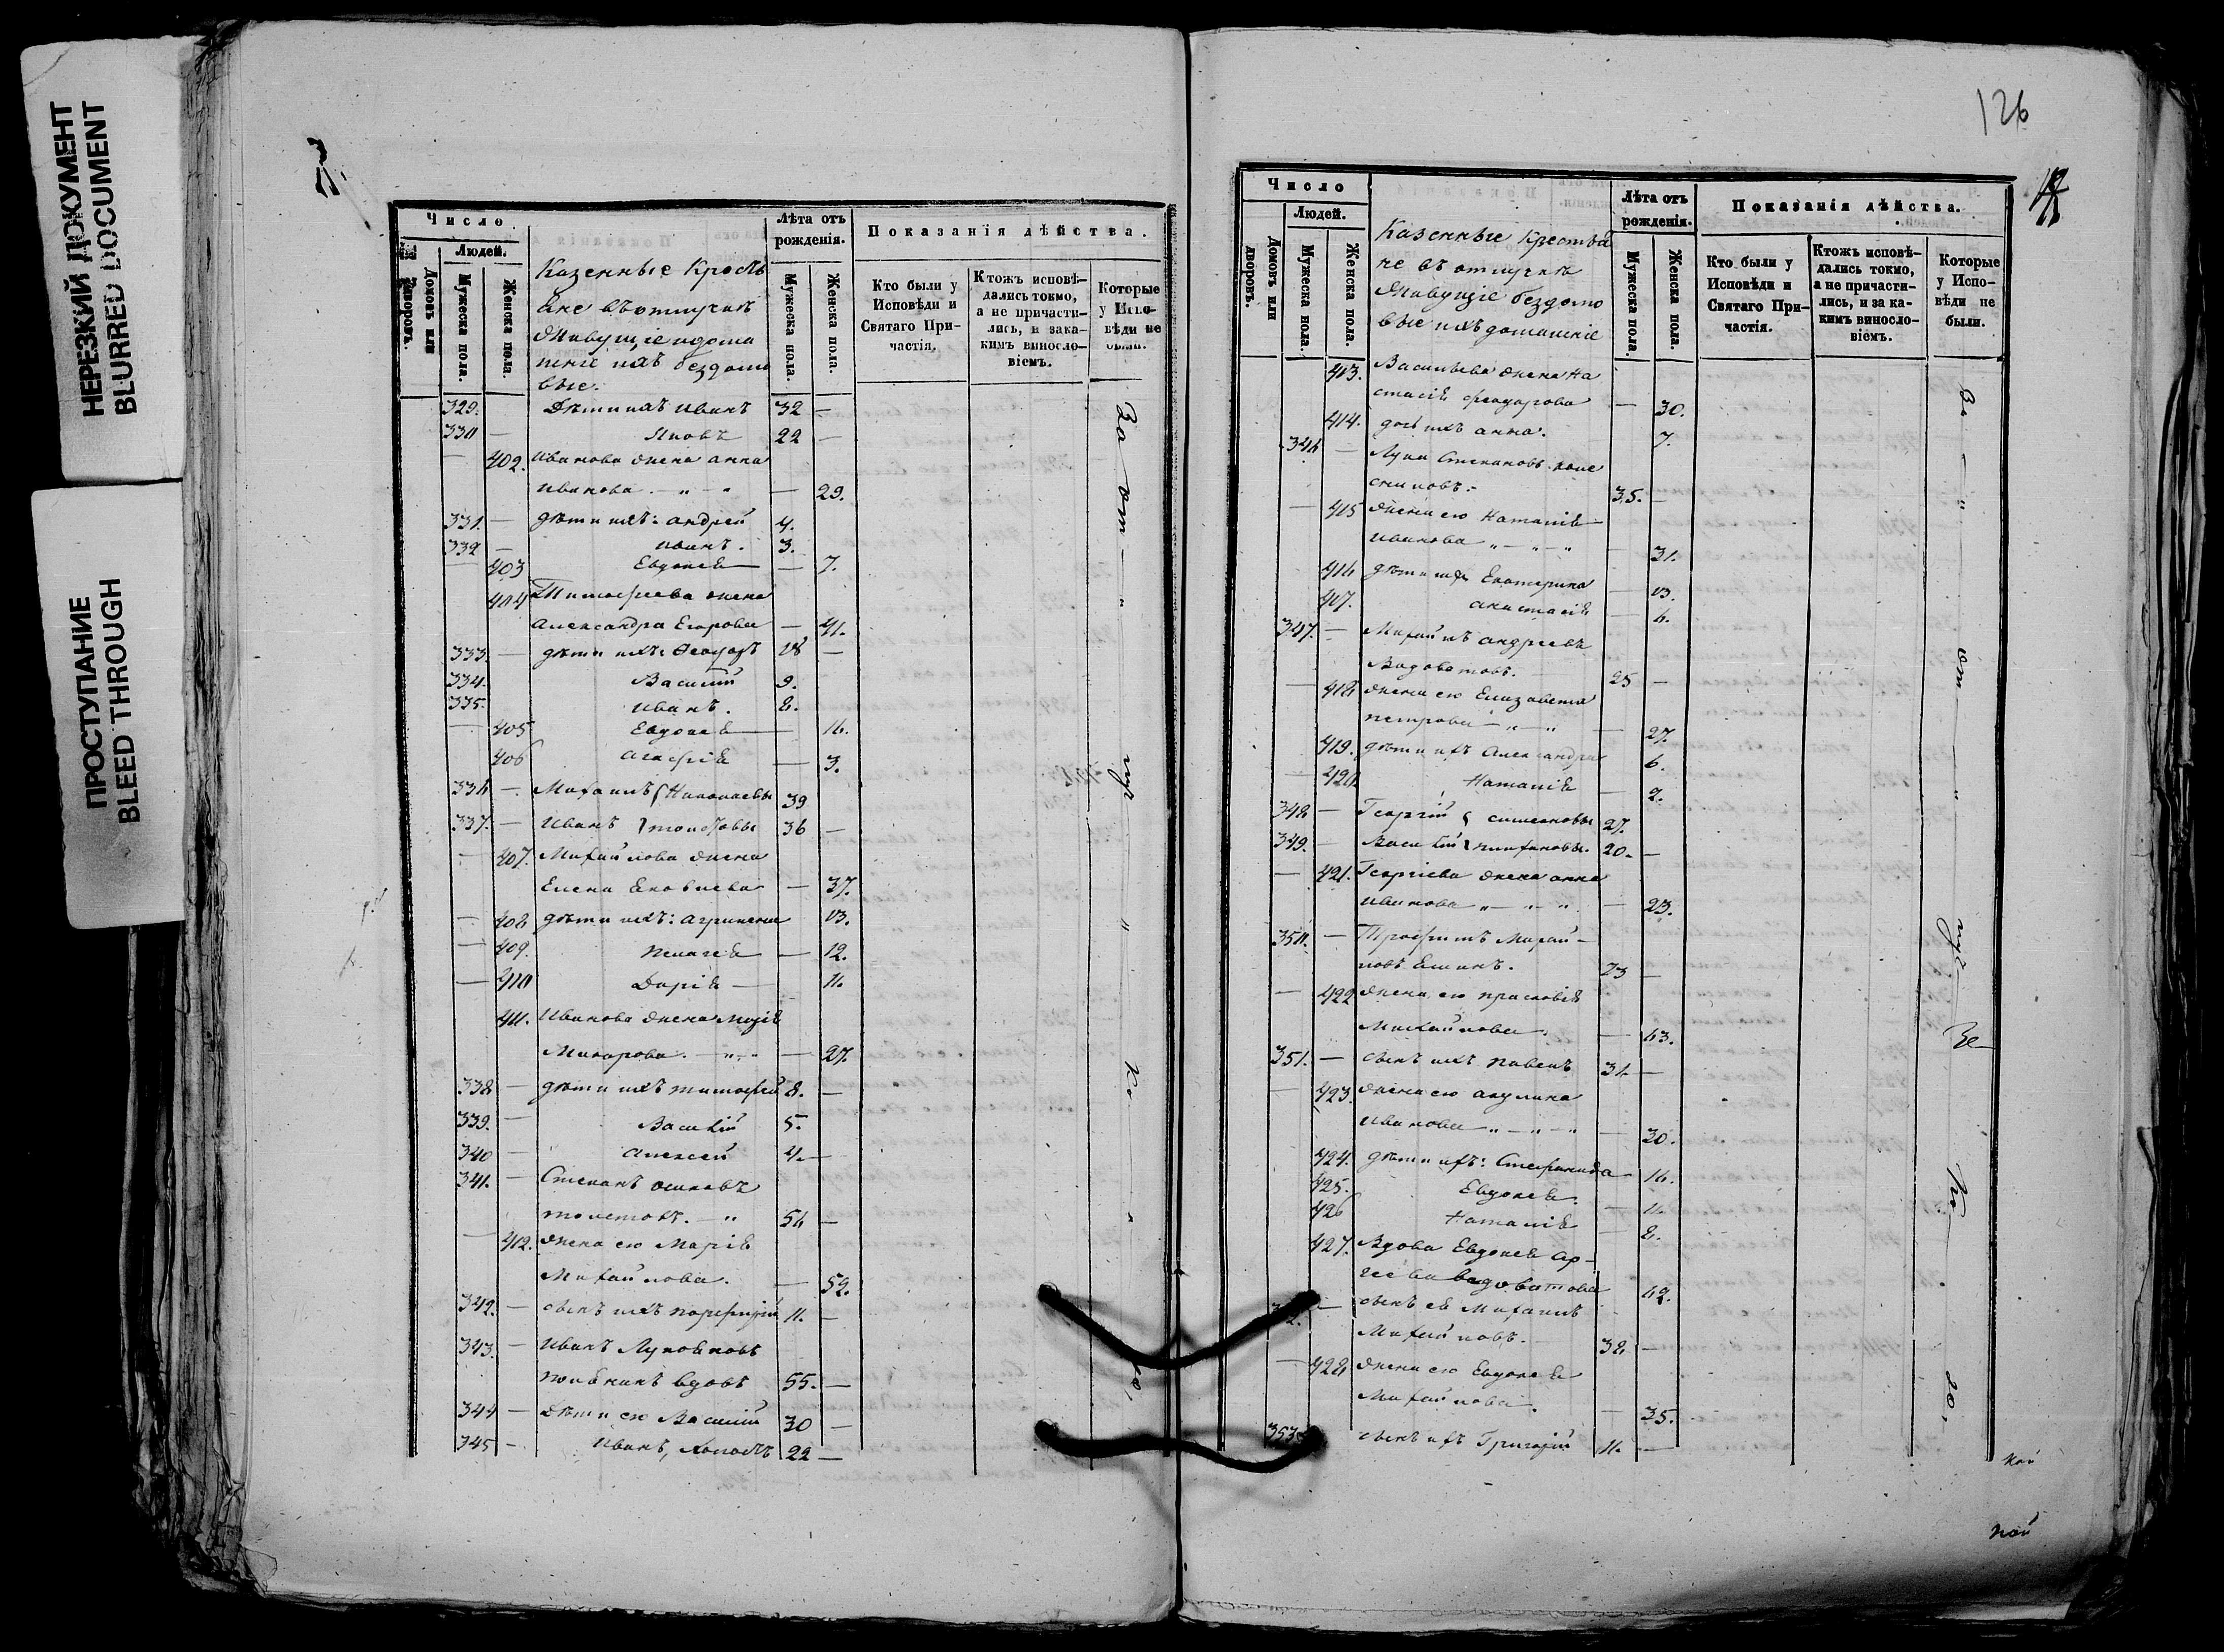 НЕРЕЗКИЙ ДОКУМЕНТ
BLURRED DOCUMENT
ПРОСТУПАНИЕ
BLEED THROUGH
Число
Людей.
Домовъ или дворовъ.
Мужеска пола.
Женска пола.
Казенные Кресть
яне въ отлучкѣ
живущіе и дома
шніе ихъ бездомо
вые.
Лѣта отъ рожденія.
Мужеска пола.
Женска пола.
Показанія дѣйства.
Кто были у Исповѣди и Святаго Причастія.
Ктожъ исповѣдались токмо, а не причастились, и за какимъ винословіемъ.
Которые у Исповѣди не были.
329. Дѣти ихъ Иванъ 32 —
330 — Яковъ 22 —
402. Иванова жена анна
Иванова — 29.
331. — дѣти ихъ: андрей 4.
332 — Иванъ. 3.
403 Евдокія — 7.
404 Тимофеева жена
Александра Егорова — 41.
333. — дѣти ихъ: Ѳеодоръ 18 —
334. Василій 9.
335. Иванъ. 8.
405 Евдокія — 16.
406 Агафія — 3.
336 — Михаилъ { Николаевы 39
337. — Иванъ } толстовы 36 —
407. Михайлова жена
Елена Яковлева — 37.
408 дѣти ихъ: агрипена 13.
409. Пелагея — 12.
410 Дарія — 11.
411. Иванова жена Марія
Макарова. — 27.
338 — дѣти ихъ тимофей 8. —
339. — Василій 5.
340 — Алексей 4. —
341. — Степанъ Осиповъ
толстовъ. 56 —
412. жена его Марія
Михайлова. — 52.
342. — сынъ ихъ порфирій 11. —
343. — Иванъ Лукояновъ
полянинъ вдовъ 55. —
344 — Дѣти его Василій 30 —
345 — Иванъ, холостъ 22 —
Во от луч ко ю,
126
Число
Людей.
Домовъ или дворовъ.
Мужеска пола.
Женска пола.
Казенные Крестья
не въ отлучкѣ
живущіе бездомо
вые ихъ домашніе
Лѣта отъ рожденія.
Мужеска пола.
Женска пола.
Показанія дѣйства.
Кто были у Исповѣди и Святаго Причастія.
Ктожъ исповѣдались токмо, а не причастились, и за какимъ винословіемъ.
Которые у Исповѣди не были.
413. Васильева жена На
стасія феодорова — 30.
414. дочь ихъ анна. 7.
346 — Лука Степановъ коле
сниковъ. 35. —
415 жена его Наталія
Иванова — 31.
416 дѣти ихъ Екатерина — 13.
417. анастасія — 6.
347. — Михаилъ андреевъ
Видоватовъ. 25 —
418 жена его Елизавета
петрова — 27.
419. дѣти ихъ Александра 6.
420 Наталія — 2.
348 — Георгій { симеоновы 27.
349. — Василій } 20. —
421. Георгіева жена анна
Иванова — 23.
350. — Трофимъ Михай-
ловъ 73 —
422 жена его прасковія
Михайлова. — 63.
351. — сынъ ихъ павелъ 31 —
423. жена его акулина
Иванова — 30.
424. дѣти ихъ: Стефанида 16.
425. Евдокія. — 11.
426 Наталія — 8.
427. Вдова Евдокея
видоватова 62.
сынъ ея Михаилъ
Михайловъ. 38 —
428 жена его Евдокея
Михайлова. — 35.
353. сынъ ихъ Григорій 11. —
Во от луч
кой
кой